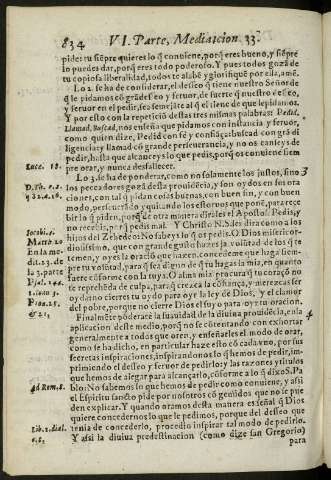 834 VI. Parte, Meditacion 33.
pide: tu siẽpre quieres lo q̃ conviene, porq̃ eres bueno, y siẽpre
lo puedes dar, porq̃ eres todo poderoso. Y pues todos gozã de
tu copiosa liberalidad, todos te alabẽ y glorifiquẽ por ella, amẽ.
Lo 2. se ha de considerar, el desseo q̃ tiene nuestro Señor de
q̃ le pidamos cõ grã desseo y fervor, de suerte q̃ nuestro desseo,
y fervor en el pedir, sea semejãte al q̃ el tiene de que le pidamos.
Y por esto con la repeticiõ destas tres mismas palabras: Pedid,
Llamad, Buscad, nos enseña que pidamos con instancia y fervor,
como quien dize, Pedid con fè y confiãça: buscad con grã di
ligencia: y llamad cõ grande perseverancia, y no os canseys de
pedir, hasta que alcanceys lo que pedis, porq̃ os conviene siem
Luc. 18. pre orar, y nunca desfallecer.
Lo 3. se ha de ponderar, como no solamente los justos, sino 3
D. Th. 2.2. los peccadores gozã desta providẽcia, y son oydos en sus ora
q 83. a. 16. ciones, con tal q̃ pidan cosas buenas, con buen fin, y con buen
modo, perseverando, y quitando los estorvos que ponẽ, para reçe
bir lo q̃ piden, porq̃ de otra manera dirales el Apostol: Pedis, y
Iacobi. 4. no recebis, porq̃ pedis mal. Y Christo N. S. les dirà como a los
Matt. 20 hijos del Zebedeo: No sabeys lo q̃ os pedis. O Dios misericor-
En la me diosissimo, que con grande gusto hazes la volũtad de los q̃ te
dit. 23. de temen, y oyes la oraciõ que hazen, concedeme que haga siem-
la 3. parte pre tu volũtad, para q̃ sea digno de q̃ tu hagas la mia, en quanto
Psal. 144. fuere cõforme con la tuya. O alma mia procura q̃ tu coraçõ no
1. Ioan 3. te reprehẽda de culpa, para q̃ crezca la cõfiança, y merezcas ser
Prov. 28. oyda: no cierres tu oydo para oyr la ley de Dios, y el clamor
& 21. del pobre, porque no cierre Dios el suyo para oyr tu oracion.
Finalmẽte põderare la suavidad de la divina providẽcia, en la 4
aplicacion deste medio, porq̃ no se cõtentando con exhortar
generalmente a todos que oren, y enseñarles el modo de orar,
como se ha dicho, en particular haze esto cõ cada uno, por sus
secretas inspiraciones, inspirandonos lo q̃ hemos de pedir, im-
primiendo el desseo y fervor de pedirlo: y las razones y titulos
que hemos de alegar para alcançarlo, cõforme a lo q̃ dixo S. Pa
ad Rom. 8. blo: No sabemos lo que hemos de pedir como conviene, y assi
el Espiritu sancto pide por nosotros cõ gemidos que no se pue
den explicar. Y quando oramos desta manera es señal q̃ Dios
quiere concedernos lo que le pedimos, porque del desseo que
Lib. 1. dial. tenia de concederlo, procedio inspirar tal modo de pedirlo.
c. 8. Y assi la divina predestinacion (como dize san Gregorio)
para